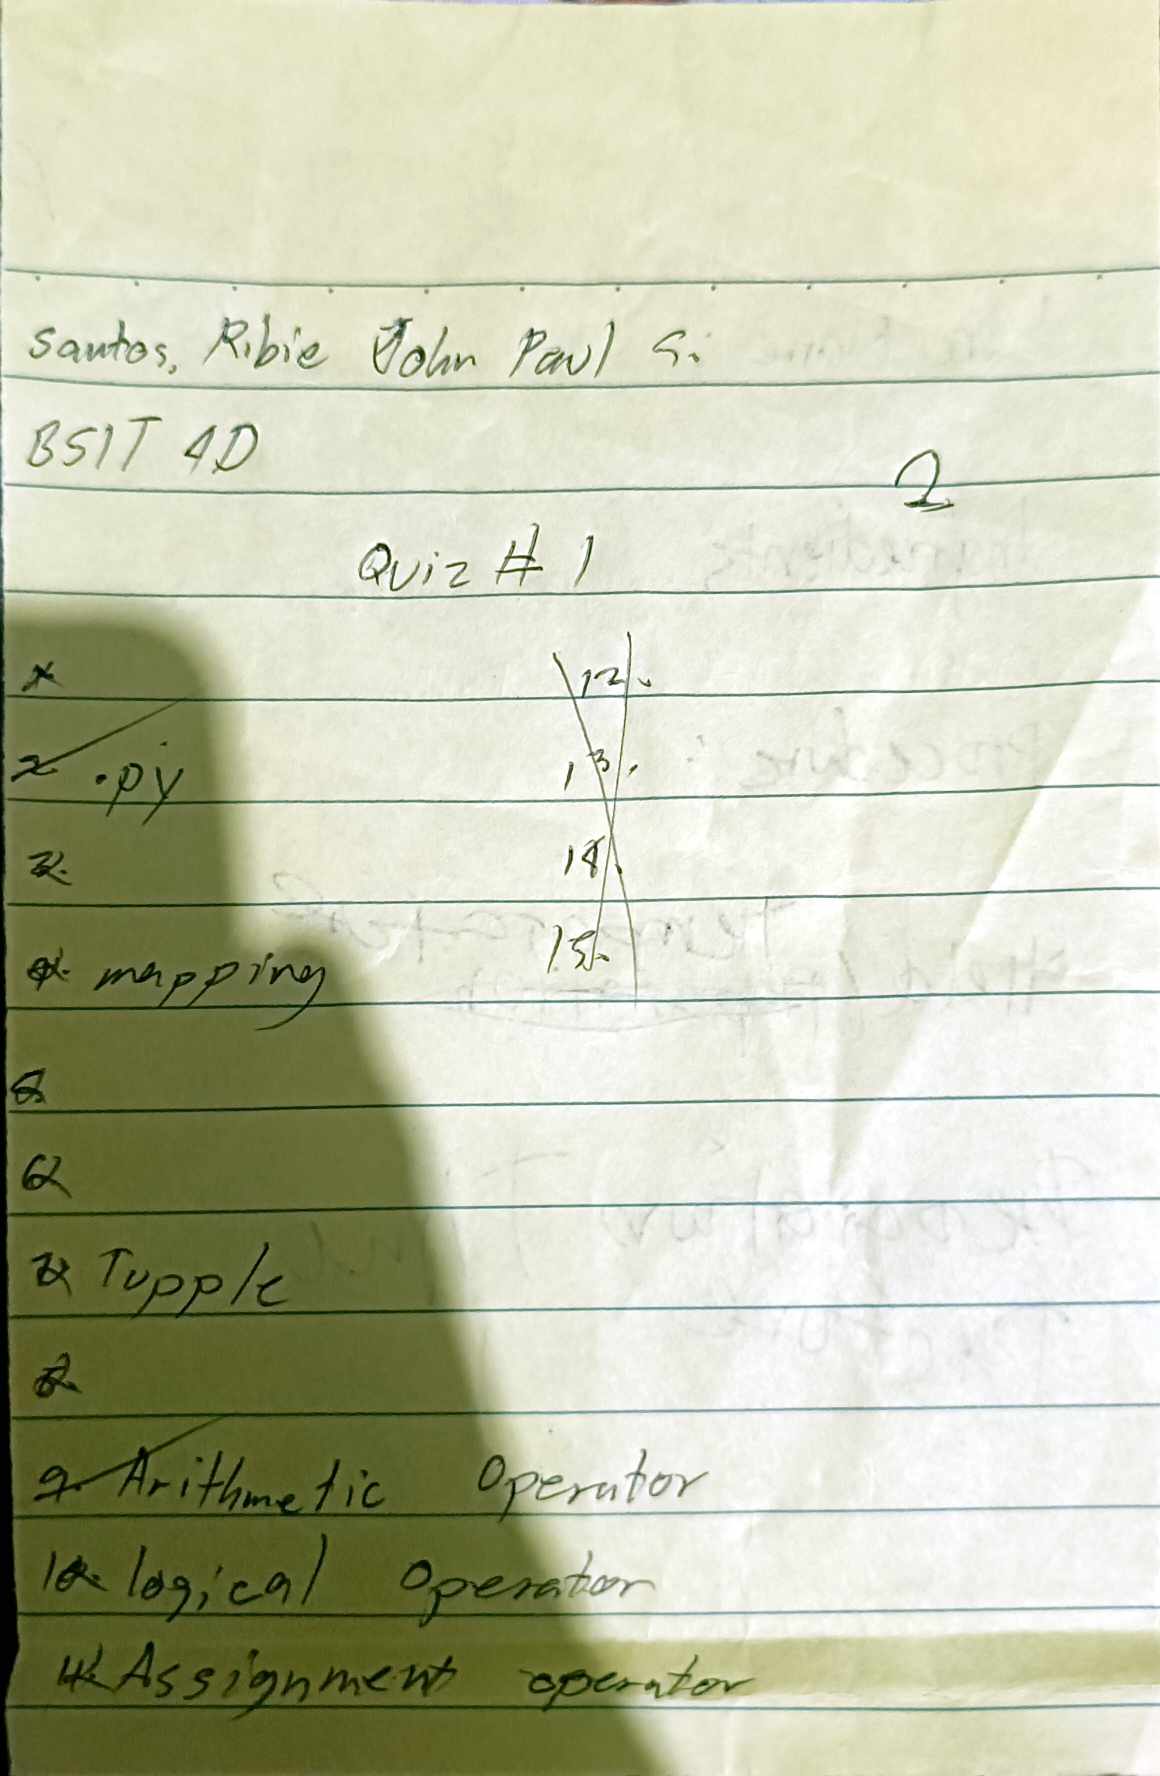 Santos, Ribie John Paul G.
BSIT 4D
2
Quiz # 1
1.
2. .py
3.
4. mapping
5.
6.
7. Tupple
8.
9. Arithmetic Operator
10. logical operator
11. Assignment operator
12.
13.
14.
15.